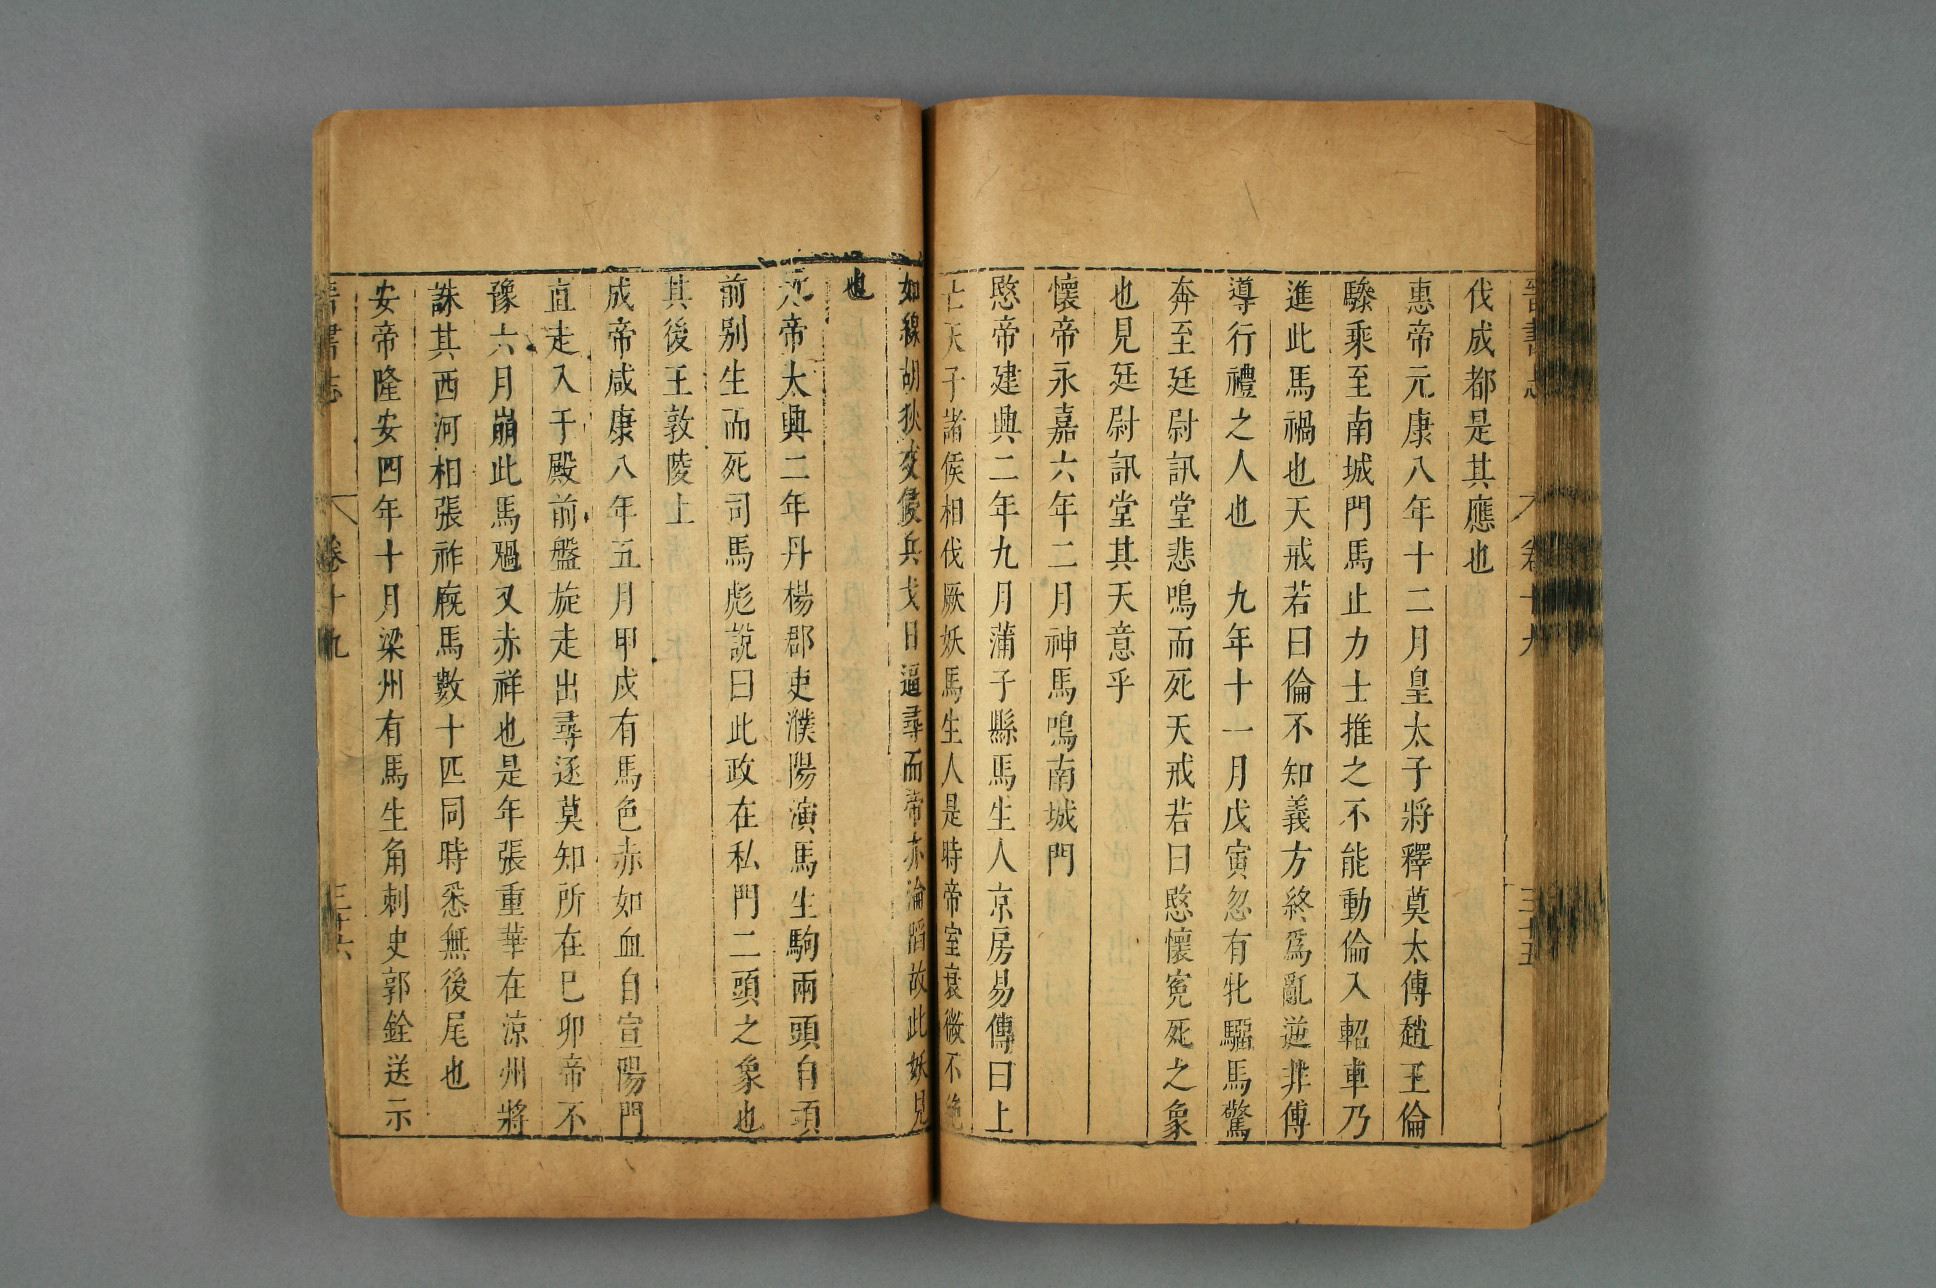 晉書志
卷十九
三十五
伐成都是其應也
惠帝元康八年十二月皇太子將釋奠太傅趙王倫
驂乘至南城門馬止力士推之不能動倫入軺車乃
進此馬禍也天戒若曰倫不知義方終爲亂逆非傅
導行禮之人也九年十一月戊寅忽有牝騮馬驚
奔至廷尉訊堂悲鳴而死天戒若曰愍懷冤死之象
也見廷尉訊堂其天意乎
懷帝永嘉六年二月神馬鳴南城門
愍帝建興二年九月蒲子縣馬生人京房易傳曰上
亡天子諸侯相伐厥妖馬生人是時帝室衰微不絶
如線胡狄交侵兵戈日逼尋而帝亦淪陷故此妖見
也
元帝太興二年丹楊郡吏濮陽演馬生駒兩頭自項
前別生而死司馬彪說曰此政在私門二頭之象也
其後王敦陵上
成帝咸康八年五月甲戌有馬色赤如血自宣陽門
直走入于殿前盤旋走出尋逐莫知所在巳卯帝不
豫六月崩此馬禍又赤祥也是年張重華在涼州將
誅其西河相張祚廐馬數十匹同時悉無後尾也
安帝隆安四年十月梁州有馬生角刺史郭銓送示
晉書志
卷十九
三十六